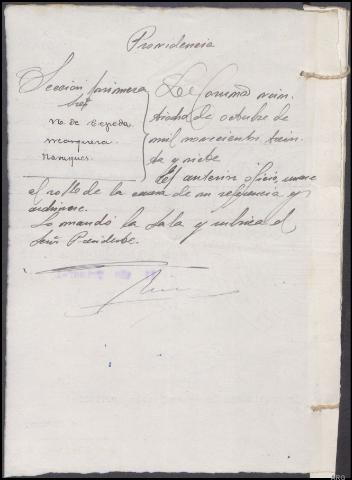 Providencia
Seccion primera
Sres
No. de Cepeda
Mosquera
Nanigues.
La Coruña vein-
tiocho de octubre de
mil novecientos trein-
ta y siete
El anterior oficio, unase
al rollo de la causa de su referencia y
Lo mandó la Sala y rubrica el
Señor Presidente.